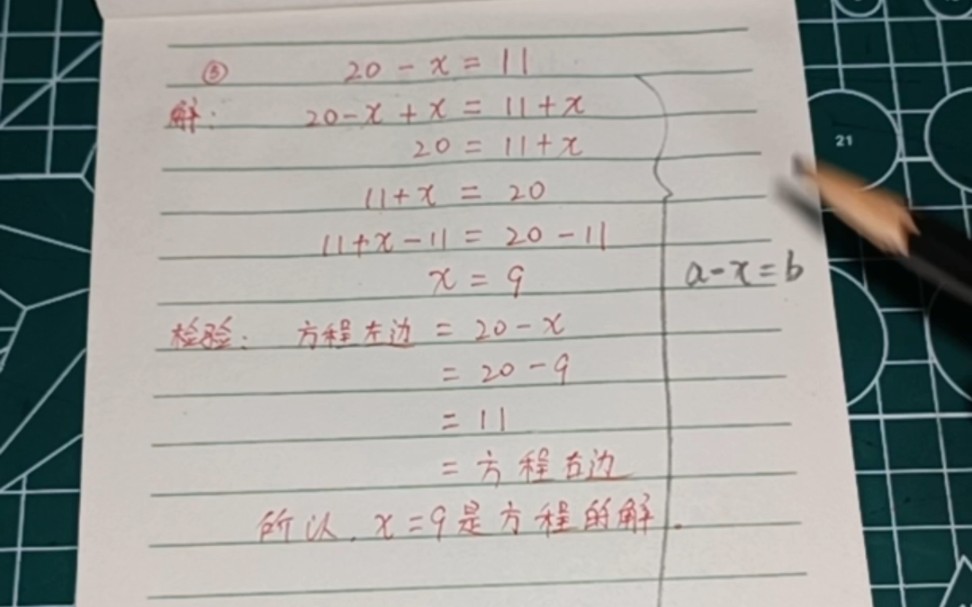 ③ 20-x=11
解: 20-x+x=11+x
20=11+x
11+x=20
11+x-11=20-11
x=9
a-x=b
检验: 方程左边=20-x
=20-9
=11
=方程右边
所以,x=9是方程的解.
21